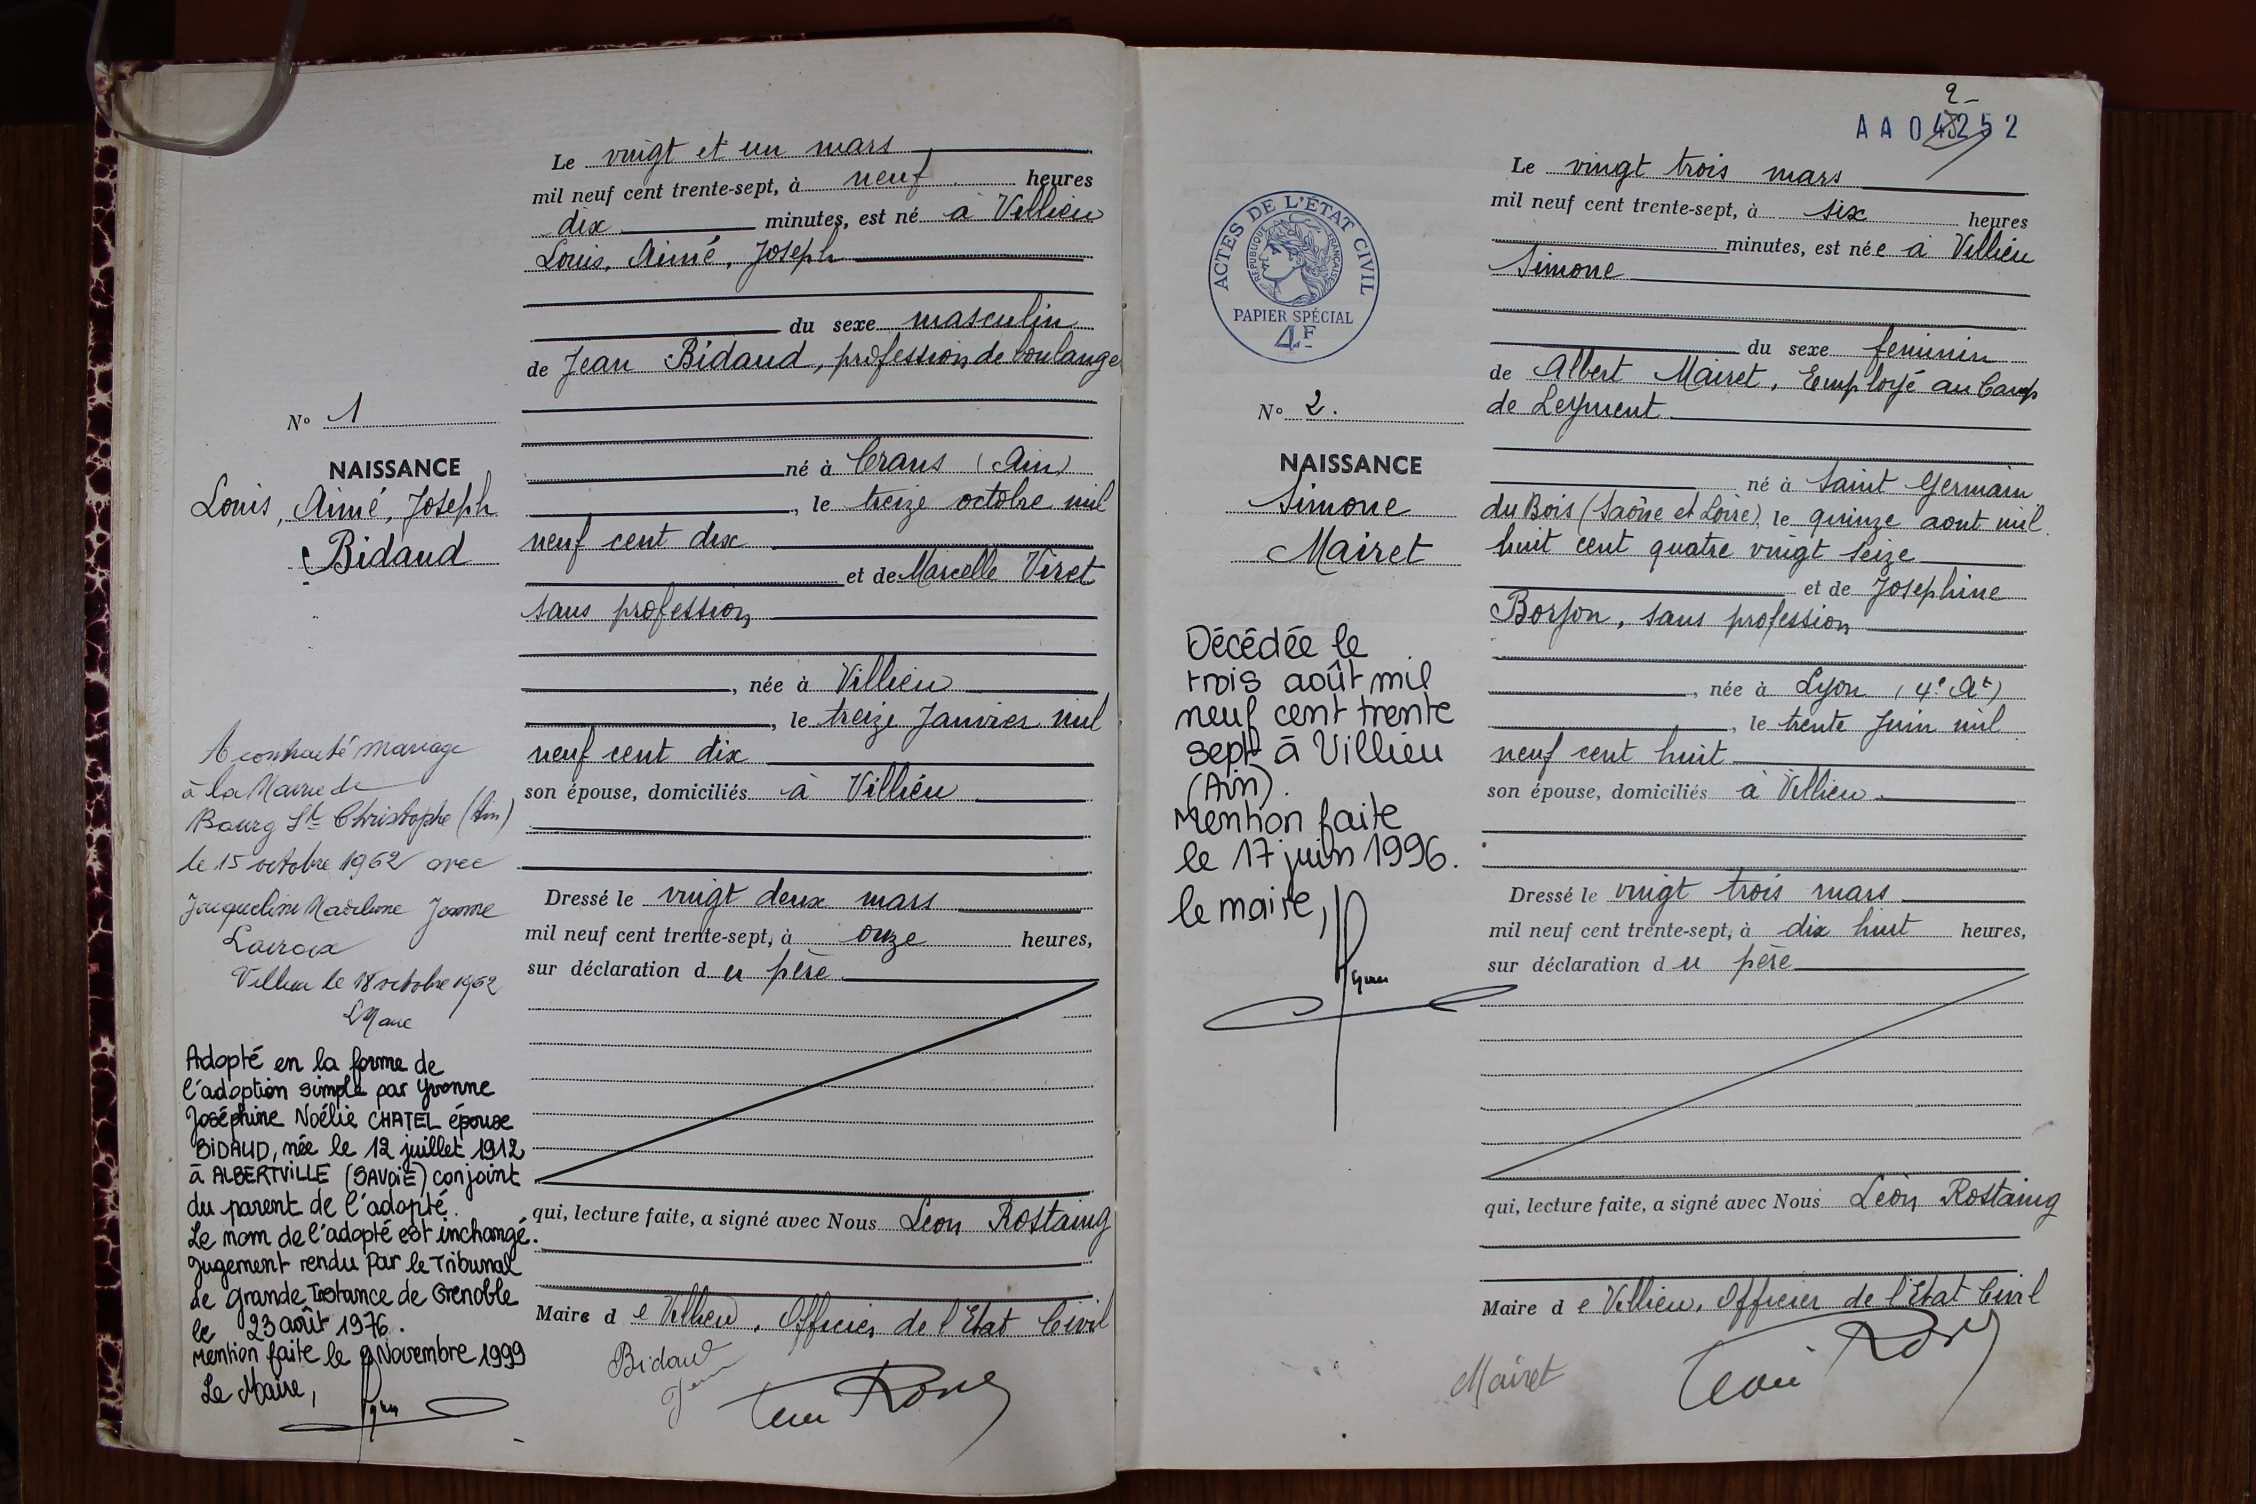 Le vingt et un mars
mil neuf cent trente-sept, à neuf heures
dix minutes, est né à Villieu
Louis, Aimé, Joseph
du sexe masculin
de Jean Bidaud, profession de boulange
N° 1
né à Crans (Ain)
NAISSANCE
Louis, Aimé, Joseph
Bidaud
, le treize octobre mil
neuf cent dix
et de Marcelle Viret
sans profession
, née à Villieu
, le treize Janvier mil
neuf cent dix
son épouse, domiciliés à Villieu
A contracté mariage
à la Mairie de
Bourg St Christophe (Ain)
le 15 octobre 1962 avec
Jacqueline Madeleine Jeanne
Lacroix
Villieu le 18 octobre 1962
Le Maire
Adopté en la forme de
l'adoption simple par Yvonne
Joséphine Noélie CHATEL épouse
BIDAUD, née le 12 juillet 1912
à ALBERTVILLE (SAVOIE) conjoint
du parent de l'adopté.
Le nom de l'adopté est inchangé.
Jugement rendu par le Tribunal
de Grande Instance de Grenoble
le 23 août 1976.
Mention faite le 9 Novembre 1999
Le Maire,
Dressé le vingt deux mars
mil neuf cent trente-sept, à onze heures,
sur déclaration du père
qui, lecture faite, a signé avec Nous Léon Rostaing
Maire de Villieu, Officier de l'Etat Civil
Bidaud
Jean
2-
AA 045252
ACTES DE L'ETAT CIVIL
RÉPUBLIQUE FRANÇAISE
PAPIER SPÉCIAL
4F
Le vingt trois mars
mil neuf cent trente-sept, à six heures
minutes, est née à Villieu
Simone
du sexe féminin
de Albert Mairet, Employé au Camp
de Leyment
N° 2.
NAISSANCE
Simone
Mairet
né à Saint Germain
du Bois (Saône et Loire), le quinze aout mil
huit cent quatre vingt seize
et de Josephine
Borjon, sans profession
, née à Lyon (4e At)
, le trente Juin mil
neuf cent huit
son épouse, domiciliés à Villieu
Décédée le
trois août mil
neuf cent trente
sept à Villieu
(Ain).
Mention faite
le 17 juin 1996.
le maire,
Dressé le vingt trois mars
mil neuf cent trente-sept, à dix huit heures,
sur déclaration du père
qui, lecture faite, a signé avec Nous Léon Rostaing
Maire de Villieu, Officier de l'Etat Civil
Mairet